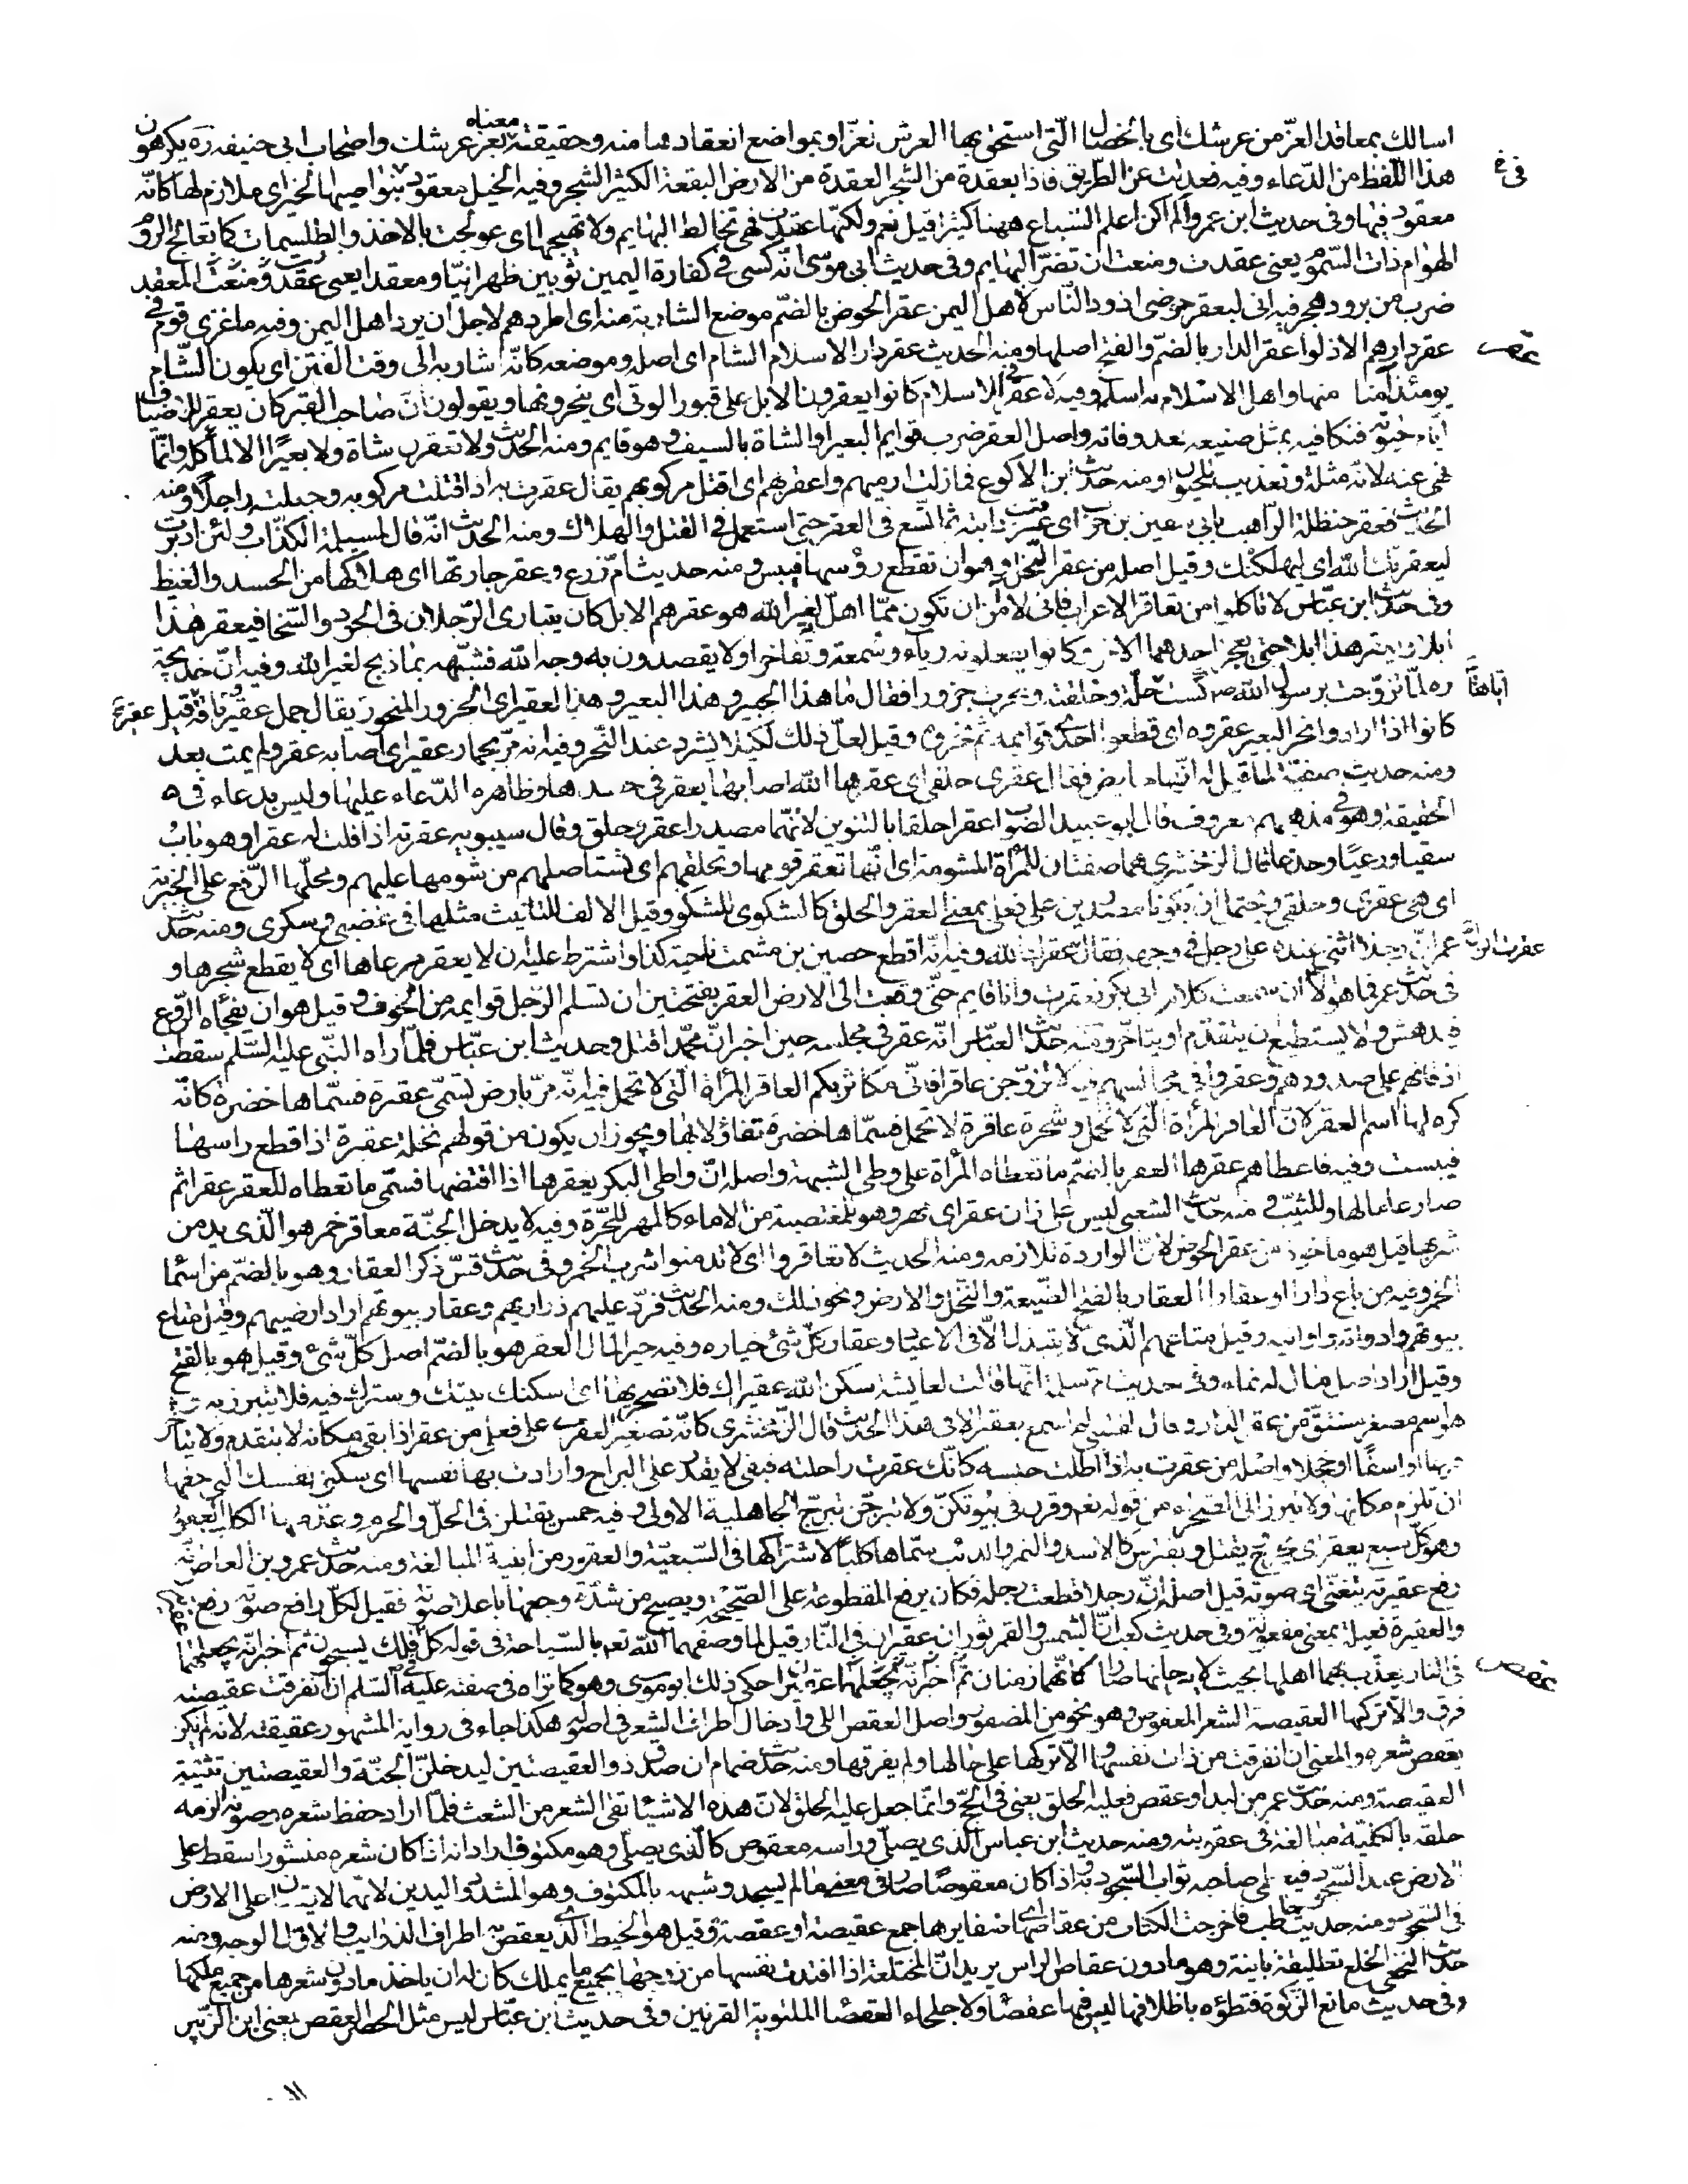 اسالك بمعاقد العز من عرشك اى بالخصال التى استحق بها العرش تعزّا وبمواضع انعقادها منه وحقيقته معناه بعز عرشك واصحاب ابى حنيفه ره يكرهون
هذا اللّفظ من الدّعاء وفيه فعدلت عن الطّريق فاذا بعقدة من الشجر العقدة من الارض البقعة الكثيرة الشجر وفيه الخيل معقود بنواصيها الخير اى ملازم لها كانّه
معقود فيها وفى حديث ابن عمرو الم اكن اعلم السّباع ههنا كثيرا قيل نعم ولكنّها عقدت فهى تخالط البهايم ولا تهيجها اى عولجت بالاخذ والطلسمات كما تعالج الروم
الهوام ذات السّموم يعنى عقدت ومنعت ان تضرّ البهايم وفى حديث ابى موسى انّه كسى فى كفارة اليمين ثوبين ظهرانيّا ومعقدا المعقد
ضرب من برود هجر فيه انى لبعقر حوضى اذود النّاس لاهل اليمن عقر الحوض بالضمّ موضع الشاربة منه اى اطردهم لاجل ان يرد اهل اليمن وفيه ما غزى قوم فى
عقر دارهم الا ذلوا عقر الدار بالضمّ والفتح اصلها ومنه الحديث عقر دار الاسلام الشام اى اصله وموضعه كانّه اشار به الى وقت الفتن اى يكون الشّام
يومئذ آمنا منها واهل الاسلام به اسلم وفيه لا عقر فى الاسلام كانوا يعقرون الابل على قبور الموتى اى ينحرونها ويقولون انّ صاحب القبر كان يعقر للاضياف
ايّام حيوته فنكافيه بمثل صنيعه بعد وفاته واصل العقر ضرب قوايم البعير او الشاة بالسيف وهو قايم ومنه الحديث ولا تعقرن شاة ولا بعيرًا الا لمأكله وانّما
نهى عنه لانّه مثلة وتعذيب للحيوان ومنه حديث ابن الاكوع فما زلت ارميهم واعقر بهم اى اقتل مركوبهم يقال عقرت به اذا قتلت مركوبه وجعلته راجلا ومنه
الحديث فعقر حنظلة الراهب بابى سفيان بن حرب اى عرقب دابته ثم اتّسع فى العقر حتى استعمل فى القتل والهلاك ومنه الحديث انّه قال لمسيلمة الكذّاب ولئن ادبرت
ليعقرنّك الله اى ليهلكنّك وقيل اصله من عقر النّخل وهو ان تقطع رؤسها فيبس ومنه حديث امّ زرع وعقر جارتها اى هلاكها من الحسد والغيظ
وفى حديث ابن عبّاس لا تاكلوا من تعاقر الاعراب فانى لا امن ان تكون ممّا اهلّ لغير الله هو عقرهم الابل كان يتبارى الرّجلان فى الجود والسّخا فيعقر هذا
ابلا ويعقر هذا ابلا حتى يعجز احدهما الاخر وكانوا يفعلونه رياء وسمعة وتفاخرا ولا يقصدون به وجه الله فشبّهه بما ذبح لغير الله وفيه انّ خديجة
ره لمّا تزوّجت برسول الله ص كست اباها حلّة وخلقته ونحرت جزورا فقال ما هذا الحبير وهذا العبير وهذا العقير اى الجزور المنحور يقال جمل عقير وناقة عقير قيل
كانوا اذا ارادوا نحر البعير عقروه اى قطعوا احدى قوايمه ثم نحروه وقيل لعلّ ذلك لكيلا يشرد عند النّحر وفيه انه مرّ بحمار عقير اى اصابه عقر ولم يمت بعد
ومنه حديث صفيّة لما قيل له انّها حايض فقال عقرى حلقى اى عقرها الله اصابها بعقر فى جسدها وظاهره الدّعاء عليها وليس بدعاء فى
الحقيقة وهو فى مذهبهم معروف قال ابو عبيد الصّواب عقرا حلقا بالتنوين لانّهما مصدرا عقر وحلق وقال سيبويه عقرته اذا قلت له عقرا وهو باب
سقيا ورعيًا وجدعا قال الزمخشرى هما صفتان للمرأة المشومة اى انّها تعقر قومها وتحلقهم اى تستاصلهم من شومها عليهم ومحلّها الرّفع على الخبرية
اى هى عقرى وحلقى ويحتمل ان يكونا مصدرين على فعلى بمعنى العقر والحلق كالشكوى للشكو وقيل الالف للتانيث مثلها فى غضبى وسكرى ومنه حديث
عمر انّ رجلا اثنى عنده على رجل فى وجهه فقال عقرت الرجل عقرك الله وفيه انّه اقطع حصين بن مشمت ناحية كذا واشترط عليه ان لا يعقر مرعاها اى لا يقطع شجرها و
فى حديث عمر فما هو الّا ان سمعت كلام ابى بكر فعقرت وانا قايم حتّى وقعت الى الارض العقر بفتحتين ان تسلم الرّجل قوايمه من الخوف وقيل هو ان يفجأه الرّوع
فيدهش ولا يستطيع ان يتقدّم او يتاخّر ومنه حديث العبّاس انّه عقر فى مجلسه حين اخبر انّ محمّدا قتل وحديث ابن عبّاس فلمّا راه النّبى عليه السّلم سقطت
اذقانهم على صدورهم وعقروا فى مجالسهم فيه لا تزوّجن عاقرا فانّى مكاثر بكم العاقر المرأة التى لا تحمل فيه انّه مرّ بارض تسمّى عقرة فسمّاها خضرة كانّه
كره لها اسم العقر لانّ العاقر المرأة التى لا تحمل وشجرة عاقرة لا تحمل فسمّاها خضرة تفاؤلا بها ويجوز ان يكون من قولهم نخلة عقرة اذا قطع راسها
فيبست وفيه فاعطاهم عقرها العقر بالضمّ ما تعطاه المرأة على وطى الشبهة واصله انّ واطى البكر يعقرها اذا افتضها فسمّى ما تعطاه للعقر عقرا ثم
صار عاما لها وللثيّب ومنه حديث الشعبى ليس على زان عقر اى مهر وهو للمغتصبة من الاماء كالمهر للحّرة وفيه لا يدخل الجنّة معاقر خمر هو الّذى يدمن
شربها قيل هو ماخوذ من عقر الحوض لانّ الواردة تلازمه ومنه الحديث لا تعاقروا اى لا تدمنوا شرب الخمر وفى حديث قسّ ذكر العقار وهو بالضمّ من اسما
الخمر وفيه من باع دارا او عقارا العقار بالفتح الضّيعة والنّخل والارض ونحو ذلك ومنه الحديث فردّ عليهم ذراريهم وعقار بيوتهم اراد ارضيهم وقيل متاع
بيوتهم وادواته واوانيه وقيل متاعهم الّذى لا يبتذل الّا فى الاعياد وعقار كلّ شئ خياره وفيه خير المال العقر هو بالضمّ اصل كلّ شئ وقيل هو بالفتح
وقيل اراد اصل مال له نماء وفى حديث ام سلمة انّها قالت لعايشة سكن الله عقيراك فلا تصحريها اى اسكنك بيتك وسترك فيه فلا تبرزيه
هو اسم مصغر مشتقّ من عقر الدار وقال القتيبى لم اسمع بعقيرى الا فى هذا الحديث قال الزّمخشرى كانّه تصغير العقرى على فعلى من عقر اذا بقى مكانه لا يتقدم ولا يتأخر
او اسفًا او خجلا واصله من عقرت به اذا اطلت حبسه كانّك عقرت راحلته فبقى لا يقدر على البراح وارادت بها نفسها اى سكنى نفسك التى حقّها
ان تلزم مكانها ولا تبرز الى الصّحراء من قوله تعم وقرن فى بيوتكنّ ولا تبرّجن تبرّج الجاهلية الاولى وفيه خمس يقتلن فى الحلّ والحرم وعدّ منها الكلب العقور
وهو كلّ سبع يعقر اى يجرح ويقتل ويفترس كالاسد والنمر والذئب سمّاها كلبًا لاشتراكها فى السّبعيّة والعقور من ابنية المبالغة ومنه حديث عمرو بن العاص انّه
رفع عقيرته يتغنّى اى صوته قيل اصله انّ رجلا قطعت رجله فكان يرفع المقطوعة على الصّحيحة ويصيح من شدّة وجعها باعلا صوته فقيل لكلّ رافع صوته رفع عقيرته
والعقيرة فعيلة بمعنى مفعولة وفى حديث كعب انّ الشمس والقمر ثوران عقيران فى النّار قيل لما وصفهما الله تعم بالسّباحة فى قوله كلّ فى فلك يسبحون ثم اخبر انّه يجعلهما
فى النار يعذّب بهما اهلها بحيث لا يبرحانها صارا كانّهما زمنان عقيران حكى ذلك ابو موسى وهو كما تراه فى صفته عليه السّلم ان انفرقت عقيصته
فرق والّا تركها العقيصة الشعر المعقوص وهو نحو من المضفور واصل العقص اللى وادخال اطراف الشعر فى اصوله هكذا جاء فى رواية المشهور عقيقته لانه لم يكن
يعقص شعره والمعنى ان انفرقت من ذات نفسها والّا تركها على حالها ولم يفرقها ومنه حديث ضمام ان صدق ذو العقيصتين ليدخلنّ الجنّة والعقيصتين تثنية
العقيصة ومنه حديث عمر من لبد او عقص فعليه الحلق يعنى فى الحجّ وانّما جعل عليه الحلق لانّ هذه الاشيا تقى الشعر من الشعث فلمّا اراد حفظ شعره وصونه الزمه
حلقه بالكليّة مبالغة فى عقوبته ومنه حديث ابن عباس الّذى يصلّى وراسه معقوص كالّذى يصلّى وهو مكتوف اراد انه اذا كان شعره منشورا سقط على
الارض عند السّجود فيعطى صاحبه ثواب السّجود به واذا كان معقوصًا صار فى معنى ما لم يسجد وشبهه بالمكتوف وهو المشدود اليدين لانّهما لا يقعان على الارض
فى السّجود ومنه حديث حاطب فاخرجت الكتاب من عقاصها اى ضفايرها جمع عقيصة او عقصة وقيل هو الخيط الّذى يعقص به اطراف الذوايب والاوّل الوجه ومنه
حديث النخعى الخلع تطليقة باينة وهو ما دون عقاص الراس يريد انّ المختلعة اذا افتدت نفسها من زوجها بجميع ما يملك كان له ان ياخذ ما دون شعرها من جميع ملكها
وفى حديث مانع الزّكوة فتطؤه باظلافها ليس فيها عقصا ولا جلحاء العقصا الملتوية القرنين وفى حديث ابن عبّاس ليس مثل الحصر العقص يعنى ابن الزّبير